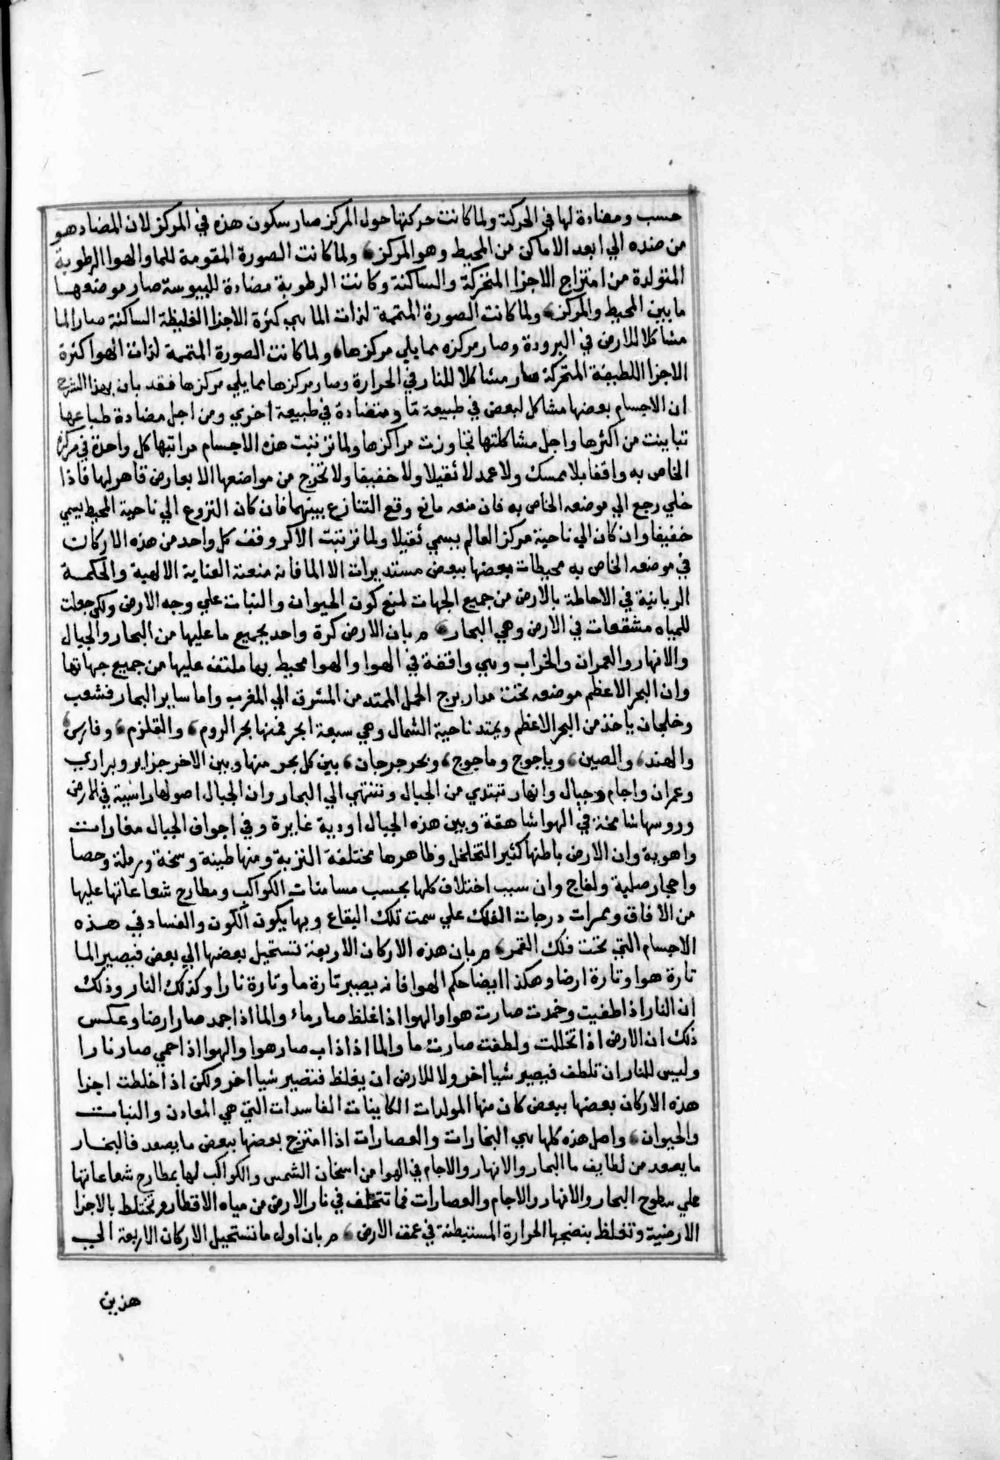 حسب ومضادة لها في الحركة ولما كانت حركتها حول المركز صار سكون هذه في المركز لان المضاد هو
من ضده الي ابعد الاماكن من المحيط وهو المركز، ولما كانت الصورة المقومة للما والهوا الرطوبة
المتولدة من امتزاج الاجزا المتحركة والساكنة وكانت الرطوبة مضادة لليبوسة صار موضعهما
ما بين المحيط والمركز، ولما كانت الصورة المتممة لذات الما هي كثرة الاجزا الغليظة الساكنة صار الما
مشاكلا للارض في البرودة وصار مركزه مما يلي مركزها، ولما كانت الصورة المتممة لذات الهوا كثرة
الاجزا اللطيفة المتحركة صار مشاكلا للنار في الحرارة وصار مركزها مما يلي مركزها فقد بان بهذا الشرح
ان الاجسام بعضها مشاكل لبعض في طبيعة ما ومتضادة في طبيعة اخري ومن اجل مضادة طباعها
تباينت من اكثرها واجل مشاكلتها تجاوزت مراكزها ولما ترتبت هذه الاجسام مراتبها كل واحدة في مركزه
الخاص به واقفا بلا ممسك ولا عمد لا ثقيلا ولا خفيفا ولا تخرج من مواضعها الا بعارض قاهر لها فاذا
خلي رجع الي موضعه الخاص به فان منعه مانع وقع التنازع بينهما فان كان النزوع الي ناحية المحيط يسمي
خفيفا وان كان الي ناحية مركز العالم يسمي ثقيلا ولما ترتبت الاكر وقف كل واحد من هذه الاركان
في موضعه الخاص به محيطات بعضها ببعض مستديرات الا الما فانه منعته العناية الالهية والحكمة
الربانية في الاحاطة بالارض من جميع الجهات لمنع كون الحيوان والنبات علي وجه الارض ولكن جعلت
للمياه مشقعات في الارض وهي البحار، مربان الارض كرة واحد بجميع ما عليها من البحار والجبال
والانهار والعمران والخراب وهي واقفة في الهوا والهوا محيط بها ملتف عليها من جميع جهاتها
وان البحر الاعظم موضعه تحت مدار برج الحمل الممتد من المشرق الي المغرب واما ساير البحار فشعب
وخلجان ياخذ من البحر الاعظم ويمتد ناحية الشمال وهي سبعة ابحر فمنها بحر الروم، والقلزم، وفارس،
والهند، والصين، وياجوج وماجوج، وبحر جرجان، بين كل بحر منها وبين الاخر جزاير وبراري
وعمران واجام وجبال وانهار تبتدي من الجبال وتنتهي الي البحار وان الجبال اصولها راسية في الارض
وروسها شامخة في الهوا شاهقة وبين هذه الجبال اودية غايرة وفي اجواف الجبال مغارات
واهوية وان الارض باطنها كثير التخلخل وظاهرها مختلفة التربة ومنها طينة وسخة ورملة وحصا
واحجار صلبة ولفاج وان سبب اختلاف كلها بحسب مسامتات الكواكب ومطارح شعاعاتها عليها
من الافاق وممرات درجات الفلك علي سمت تلك البقاع وبها يكون الكون والفساد في هذه
الاجسام التي تحت فلك القمر، مربان هذه الاركان الاربعة تستحيل بعضها الي بعض فيصير الما
تارة هوا وتارة ارضا وهكذا ايضا حكم الهوا فانه يصير تارة ما وتارة نارا وكذلك النار وذلك
ان النار اذا طفيت وخمدت صارت هوا والهوا اذا غلظ صار ماء والما اذا جمد صار ارضا وعكس
ذلك ان الارض اذا تحللت ولطفت صارت ما والما اذا ذاب صار هوا والهوا اذا حمي صار نارا
وليس للنار ان تلطف فيصير شيا اخر ولا للارض ان يغلظ فتصير شيا اخر ولكن اذا خلطت اجزا
هذه الاركان بعضها ببعض كان منها المولدات الكاينات الفاسدات التي هي المعادن والنبات
والحيوان، واصل هذه كلها هي البخارات والعصارات اذا امتزج بعضها ببعض ما يصعد فالبخار
ما يصعد من لطايف ما البحار والانهار والاجام في الهوا من اسخان الشمس والكواكب لها بمطارح شعاعاتها
علي سطوح البحار والانهار والاجام والعصارات فما تتخلف في نار الارض من مياه الاقطار وتختلط بالاجزا
الارضية وتغلظ بنضجها الحرارة المستبطنة في عمق الارض، مربان اول ما تستحيل الاركان الاربعة الي
هذين